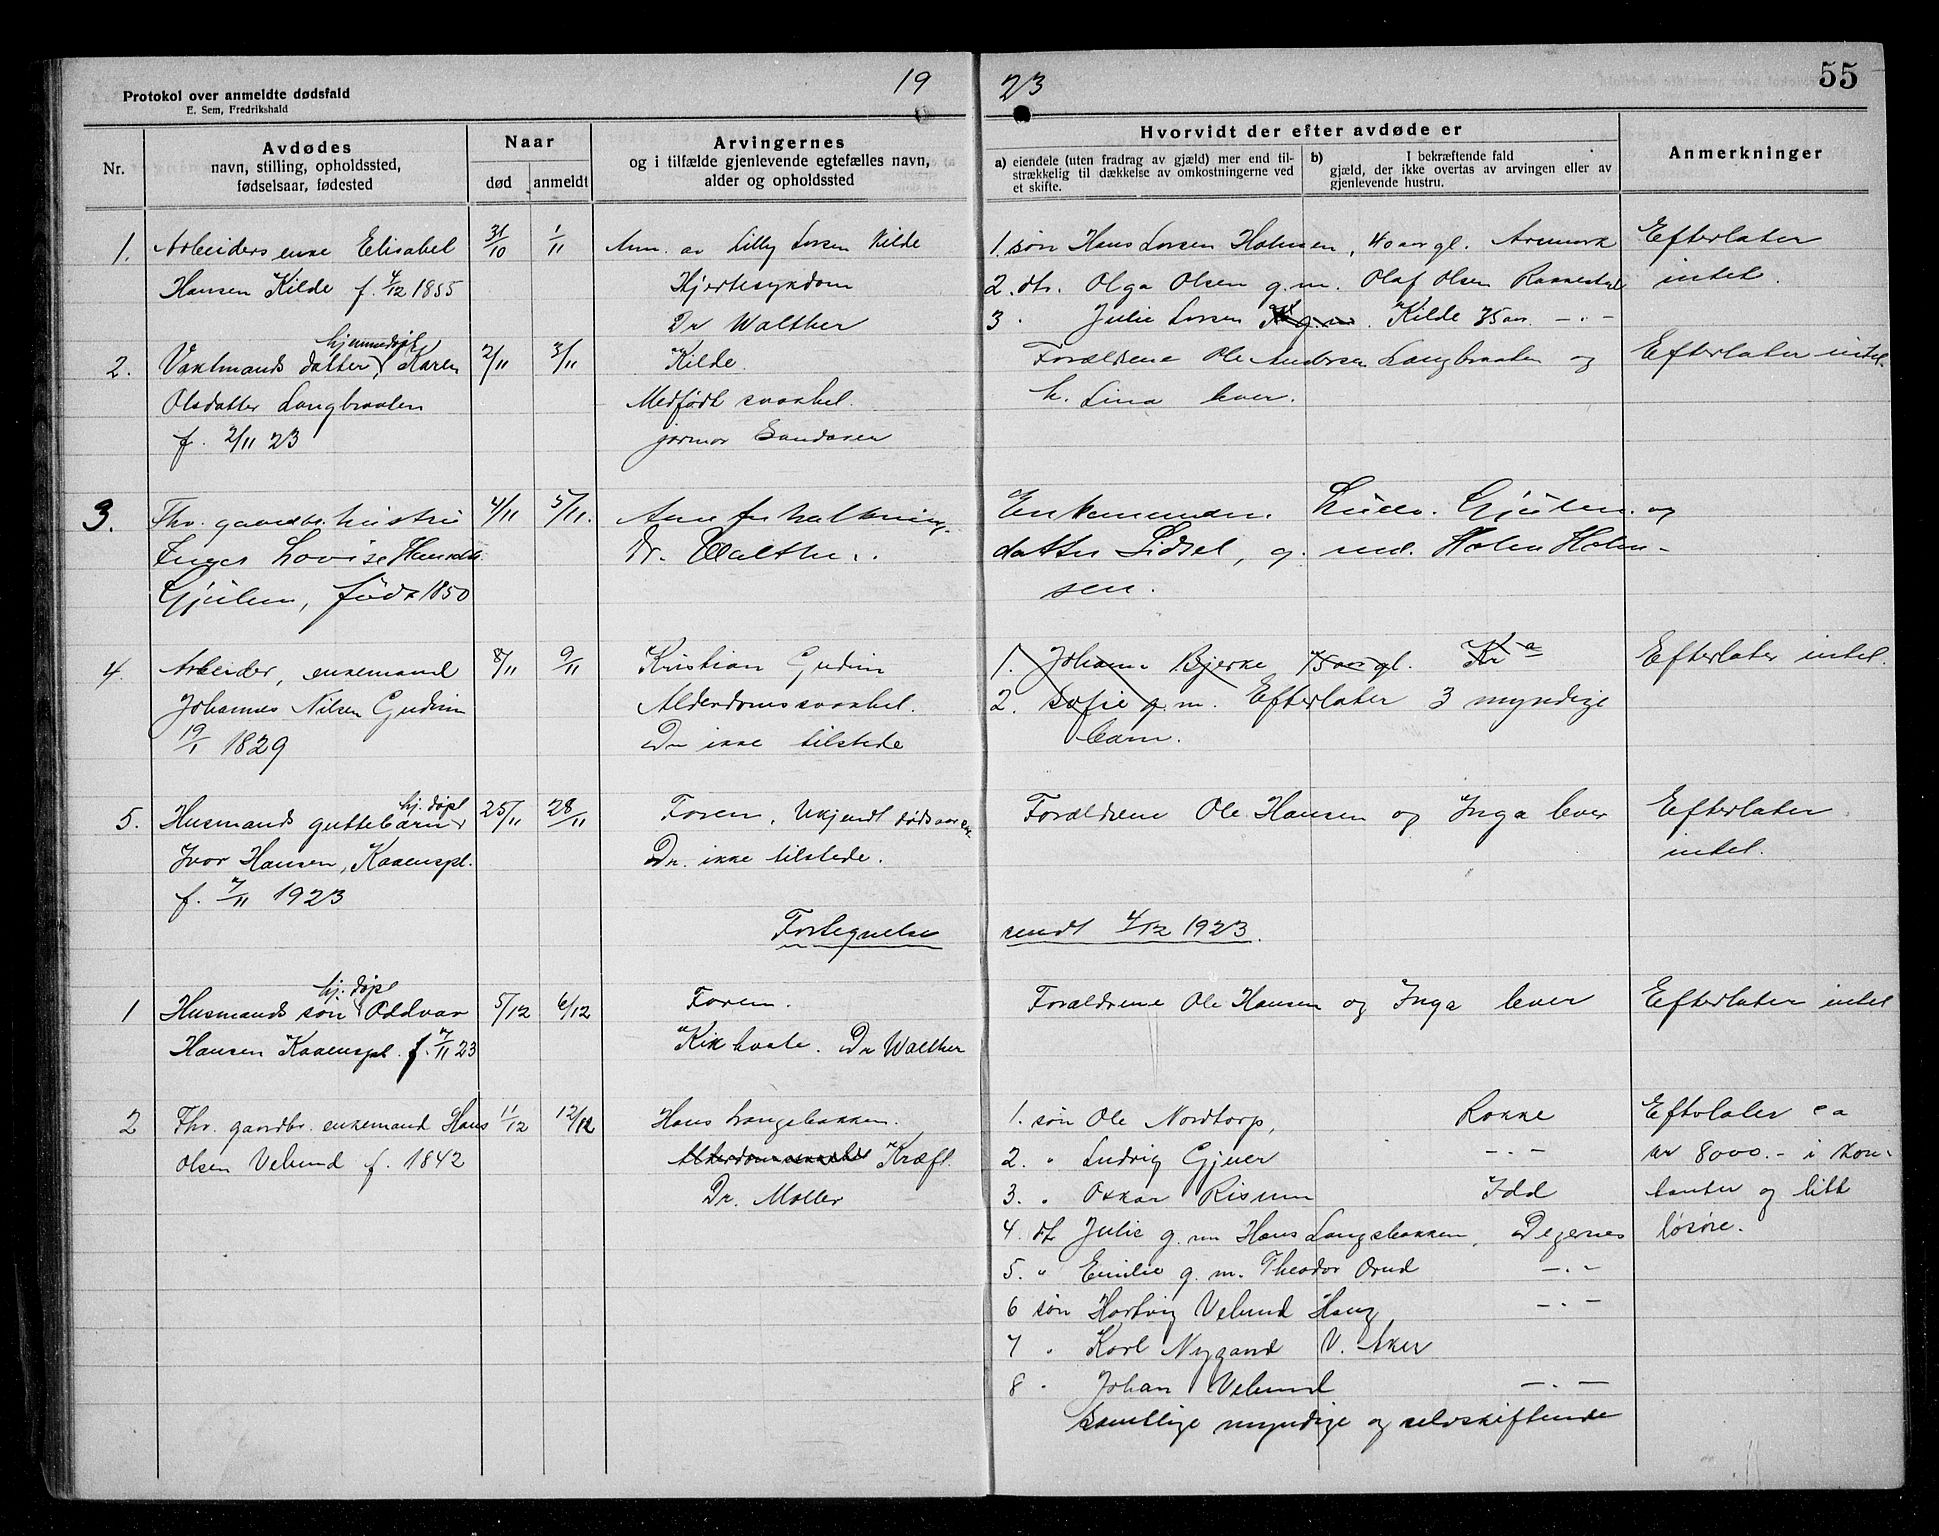 Protokol over anmeldte dødsfald
E. Sem, Fredrikshald
19 23
55
Nr.
Avdødes
navn, stilling, opholdssted,
fødselsaar, fødested
Naar
død
anmeldt
Arvingernes
og i tilfælde gjenlevende egtefælles navn,
alder og opholdssted
Hvorvidt der efter avdøde er
a) eiendele (uten fradrag av gjæld) mer end til-
strækkelig til dækkelse av omkostningerne ved
et skifte.
b) I bekræftende fald
gjæld, der ikke overtas av arvingen eller av
gjenlevende hustru.
Anmerkninger
1. Arbeiders enke Elisabet
Hansen Kilde f. 4/12 1855
31/10
1/11
Anm. av Lilly Lorsen Kilde
Hjertesykdom
Dr Walther
1. søn Hans Lorsen Holmsen, 40 aar gl. Aremark
2. dtr. Olga Olsen g. m. Olaf Olsen Rakkestad
3 Julie Lorsen g. m. Kilde 35 aar -"-
Efterlater
intet.
2. Vaktmands datter, hjemmedøpt Karen
Olsdatter Langbraaten
f. 2/11 23
2/11
3/11
Kilde.
Medfødt svakhet.
jormor Gandaren
Forældrene Ole Andersen Langbraaten og
h. Lina lever.
Efterlater intet.
3. Fhv. gaardbr. hustru
Inger Lovise Hansdt.
Gjølen, født 1850
4/11
5/11.
Dr. Walther.
Enkemanden Ludv. Gjølen og
datter Lidsel, g. med. Holm Holm-
sen.
4. Arbeider, enkemand
Johannes Nilsen Gudim
19/1 1829
8/11
9/11
Kristian Gudim
Alderdomssvakhet.
Dr ikke tilstede
1. Johan Bjerke 75 aar gl. Kr a
2. Sofie g. m. Efterlater 3 myndige
barn.
Efterlater intet.
5. Husmands guttebarn hj. døpt
Ivar Hansen, Kaaenspl.
f. 7/11 1923
25/11
28/11
Faren, Ukjendt dødsaarsak.
Dr. ikke tilstede.
Forældrene Ole Hansen og Inga lever
Efterlater
intet.
Fortegnelse sendt 4/12 1923.
1 Husmands søn hj. døpt Oddvar
Hansen Kaaenspl. f. 7/11 23
5/12
6/12
Faren.
Kikhoste. Dr Walther
Forældrene Ole Hansen og Inga lever
Efterlater intet
2 Fhv. gaardbr. enkemand Hans
Olsen Velund f. 1842
11/12
12/12
Hans Langsbakken.
Alderdomssvakhet Kræft
Dr. Møller
1. søn Ole Nordtorp, Rokke
2. " Ludvig Gjuer -"-
3. " Oskar Risum Idd
4. dt Julie g. m Hans Langsbakken, Degernes
5. " Emilie g. m. Theodor Orud -"-
6 søn Hartvig Velund Haug -"-
7 " Karl Nygaard V. Aker
8 " Johan Velund -"-
Samtlige myndige og selvskiftende
Efterlater ca
kr 8000.- i kon-
tanter og litt
løsøre.